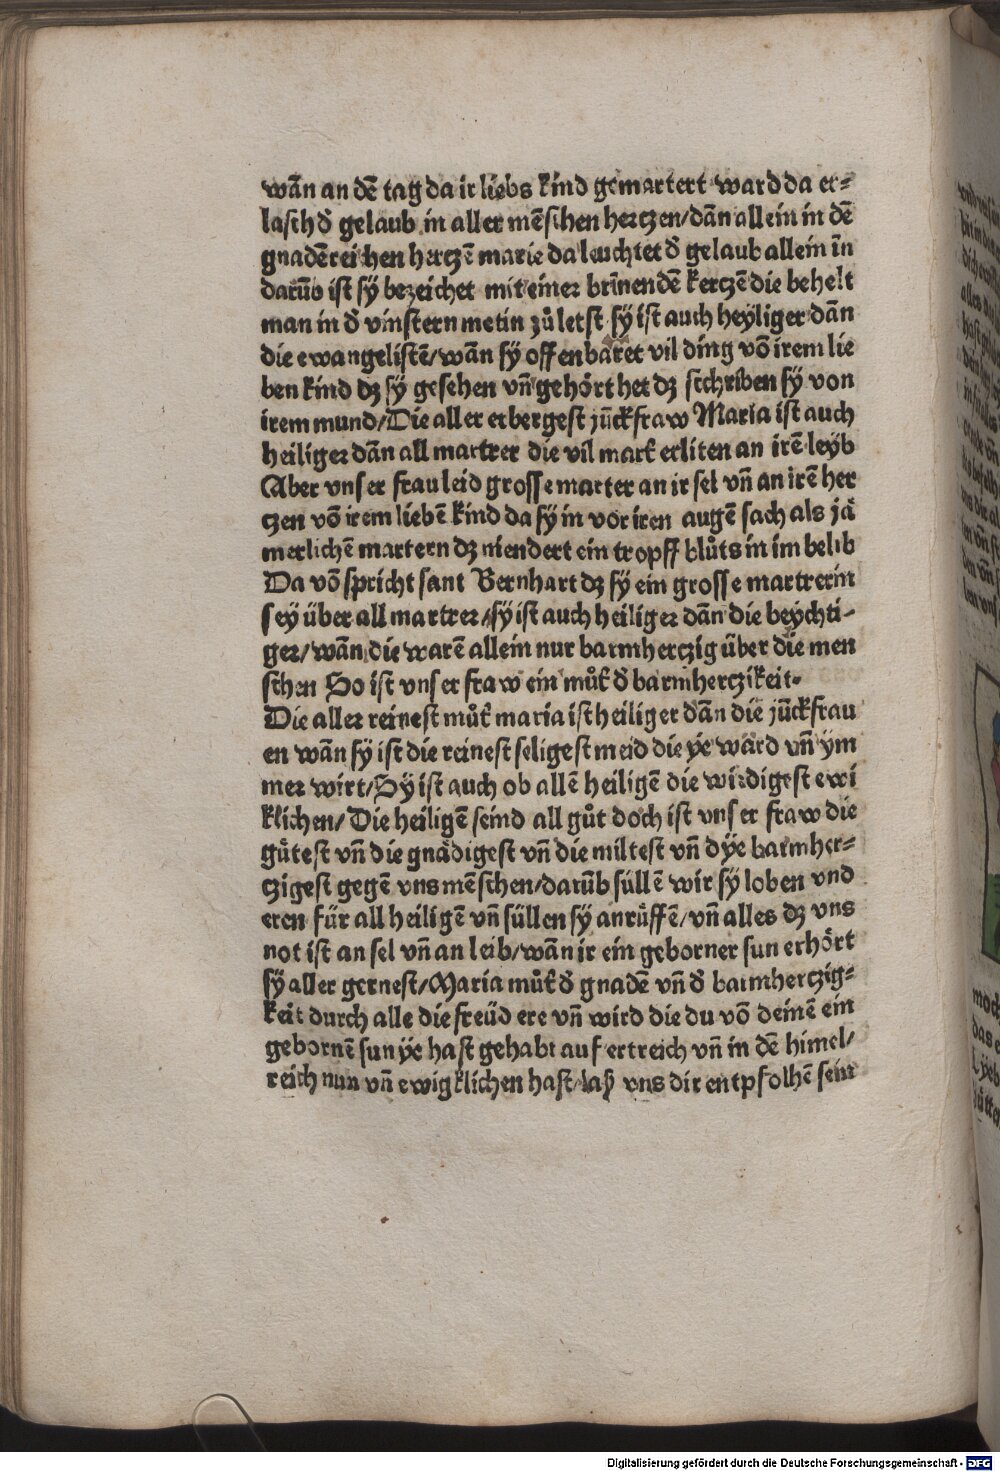 wān an dē tag da ir liebs kind gemartert ward da er⸗
lasch đ gelaub in aller mēschen hertzen/dān allein in dē
gnadēreichen hertzē marie da leuchtet đ gelaub allein īn
darūb ist sÿ bezeichet mit einer brīnendē kertzē die behelt
man in đ vinstern metin zůletst sÿ ist auch heyliger dān
die ewangelistē/wān sÿ offenbaret vil ding vō irem lie
ben kind dz sÿ gesehen vn̄ gehört het dz schriben sÿ von
irem mund/Die aller erbergest jūckfraw Maria ist auch
heiliger dān all martrer die vil mart̉ erliten an irē leyb
Aber vnser frau leid grosse marter an ir sel vn̄ an irē her
tzen vō irem liebē kind da sÿ in vor iren augē sach als jä
merlichē martern dz niendert ein tropff blůts in im belib
Da vō spricht sant Bernhart dz sÿ ein grosse martrerin
sey über all martrer/sÿ ist auch heiliger dān die beychti⸗
ger/wān die warē allein nur barmhertzig über die men
schen So ist vnser fraw ein můt̉ đ barmhertzikeit.
Die aller reinest můt̉ maria ist heiliger dān die jūckfrau
en wān sÿ ist die reinest seligest meid die ÿe ward vn̄ ÿm
mer wirt/Sÿ ist auch ob allē heiligē die wirdigest ewi
klichen/Die heiligē seind all gůt doch ist vnser fraw die
gütest vn̄ die gnädigest vn̄ die miltest vn̄ dÿe barmher⸗
tzigest gegē vns mēschen/darūb süllē wir sÿ loben vnd
eren für all heiligē vn̄ süllen sÿ anrüffē/vn̄ alles dz vns
not ist an sel vn̄ an leib/wān ir ein geborner sun erhört
sÿ aller gernest/Maria můt̉ đ gnadē vn̄ đ barmhertzig⸗
keit durch alle die freüd ere vn̄ wird die du vō deinē ein
gebornē sun ÿe hast gehabt auf ertreich vn̄ in dē himel/
reich nun vn̄ ewigklichen hast/laß vns dir entpfolhē sein
Digitalisierung gefördert durch die Deutsche Forschungsgemeinschaft - DFG